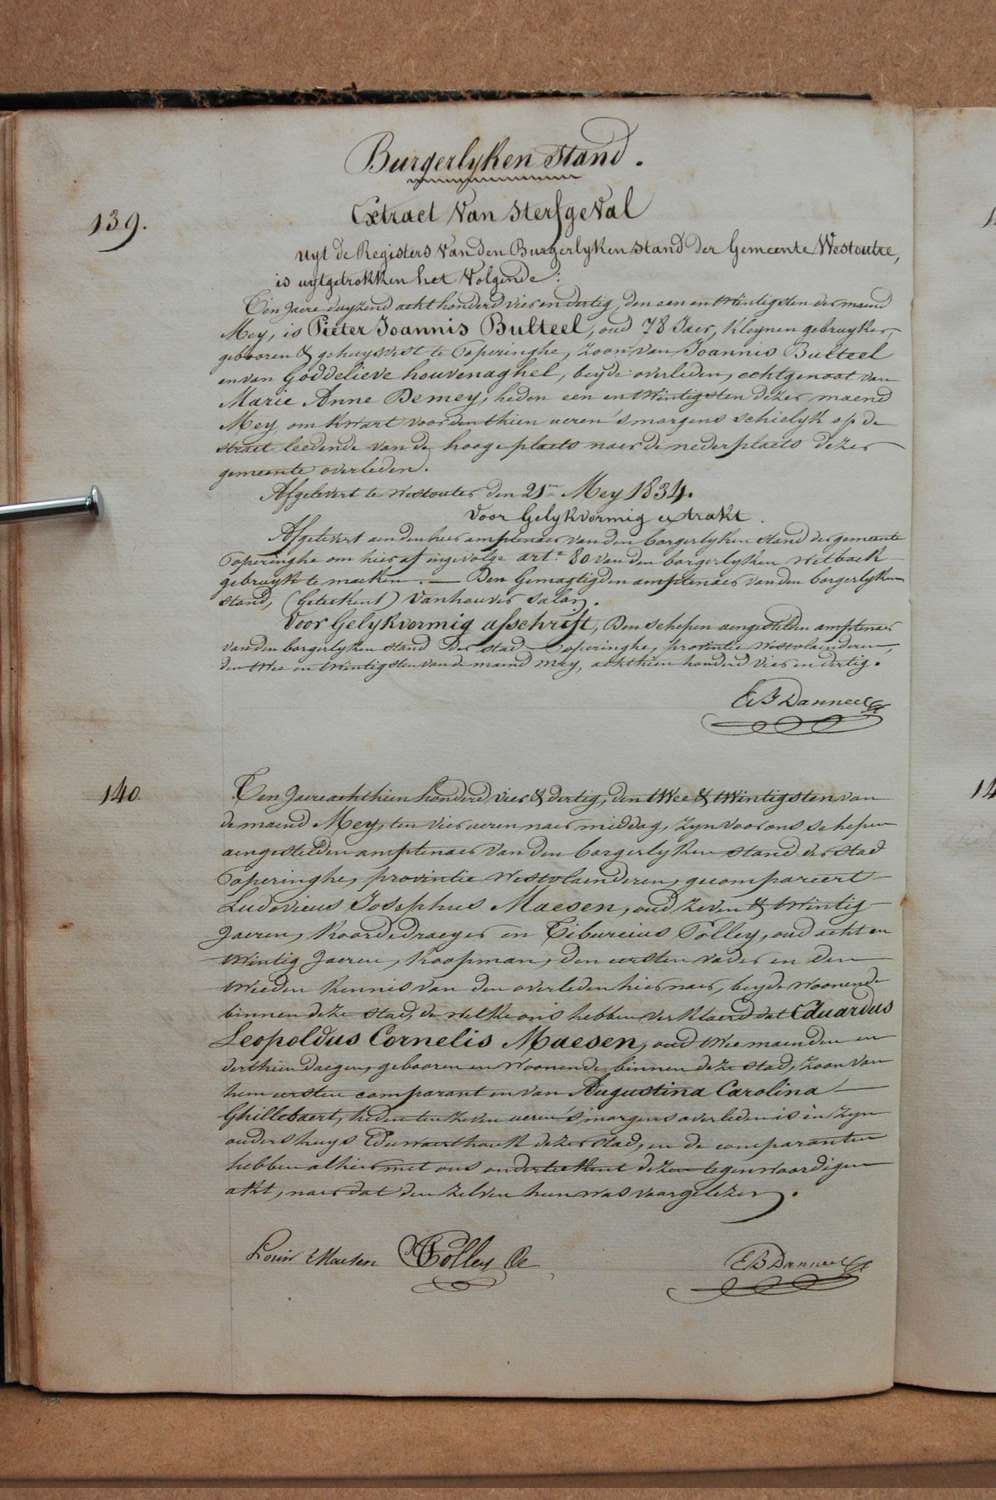 Burgerlyken stand.
139.
Extract van sterfgeval
uyt de Registers van den Burgerlyken stand der Gemeente Westoutre,
is uytgetrokken het volgende:
Ten jaere duyzend acht honderd vier en dertig, den een en twintigsten der maend
Mey, is Pieter Joannis Bulteel, oud 78 Jaer, kleynen gebruyker,
gebooren & gehuysvest te Poperinghe, zoon van Joannis Bulteel
en van Goddelieve houvenaghel, beyde overleden, echtgenoot van
Marie Anne Demey, heden een en twintigsten dezer maend
Mey, om kwart voor den thien ueren 's morgens schielyk op de
straet leedende van de hooge plaets naer de nederplaets dezer
gemeente overleden.
Afgelevert te Westouter den 21en Mey 1834.
Voor Gelykvormig extrakt.
Afgelevert aen den heer amptenaer van den borgerlyken stand der gemeente
Poperinghe om hier af ingevolge arte 80 van den borgerlyken wetboek
gebruyk te maeken. — Den Gemagtigden amptenaer van den borgerlyken
stand, (Geteekent) Vanhauver
Voor Gelykvormig afschrift, Den schepen aengestelden amptenaer
van den borgerlyken stand der stad Poperinghe, provintie Westvlaenderen,
den twee en twintigsten van de maend mey, achthien honderd vier en dertig.
140.
Ten Jaere achthien honderd vier & dertig, den twee & twintigsten van
de maend Mey, ten vier ueren naer middag, zyn voor ons schepen
aengestelden amptenaer van den borgerlyken stand der stad
Poperinghe, provintie Westvlaenderen, gecompareert
Ludovicus Josephus Maesen, oud zeven & twintig
Jaeren, koordedraeyer en Tiburcius Tolley, oud acht en
twintig Jaeren, koopman, den eersten vader en den
tweeden kennis van den overleden hier naer, beyde woonende
binnen deze stad, de welke ons hebben verklaerd dat Eduardus
Leopoldus Cornelis Maesen, oud twee maenden en
derthien daegen, gebooren en woonende binnen deze stad, zoon van
hem eersten comparant en van Augustina Carolina
Ghillebaert, heden ten zeven ueren 's morgens overleden is in zyn
ouders huys dezer stad, en de comparanten
hebben alhier met ons onderteekent dezen tegenwoordigen
akt, naer dat den zelven hun was voorgelezen.
Louis Maesen Tolley